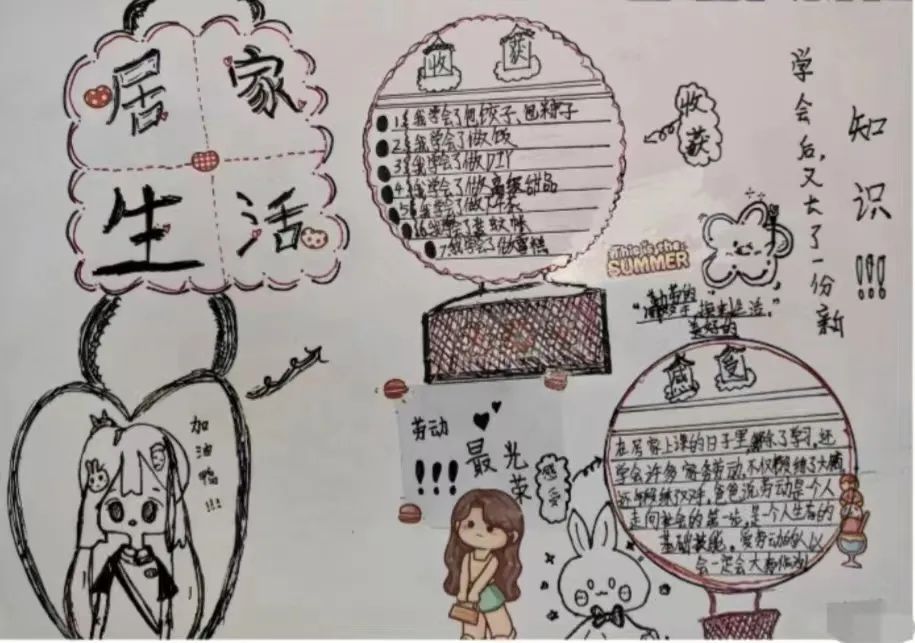 居家
生活
收获
1.我学会了包饺子、包粽子
2.我学会了做饭
3.我学会了做DIY
4.我学会了做高级甜品
5.我学会了做
6.我学会了
7.我学会了做蛋糕
收获
学会后,又大了一份新
知识!!!
This is the
SUMMER
"勤劳的
美好的
加油鸭!!!
劳动
最光荣
!!!
感受
感受
在居家上课的日子里,除了学习,还
学会许多家务劳动,不仅锻练了大脑
还锻练了双手,爸爸说劳动是个人
走向社会的第一步,是一个人生存的
基础技能。爱劳动的人以
会一定会大有作为!